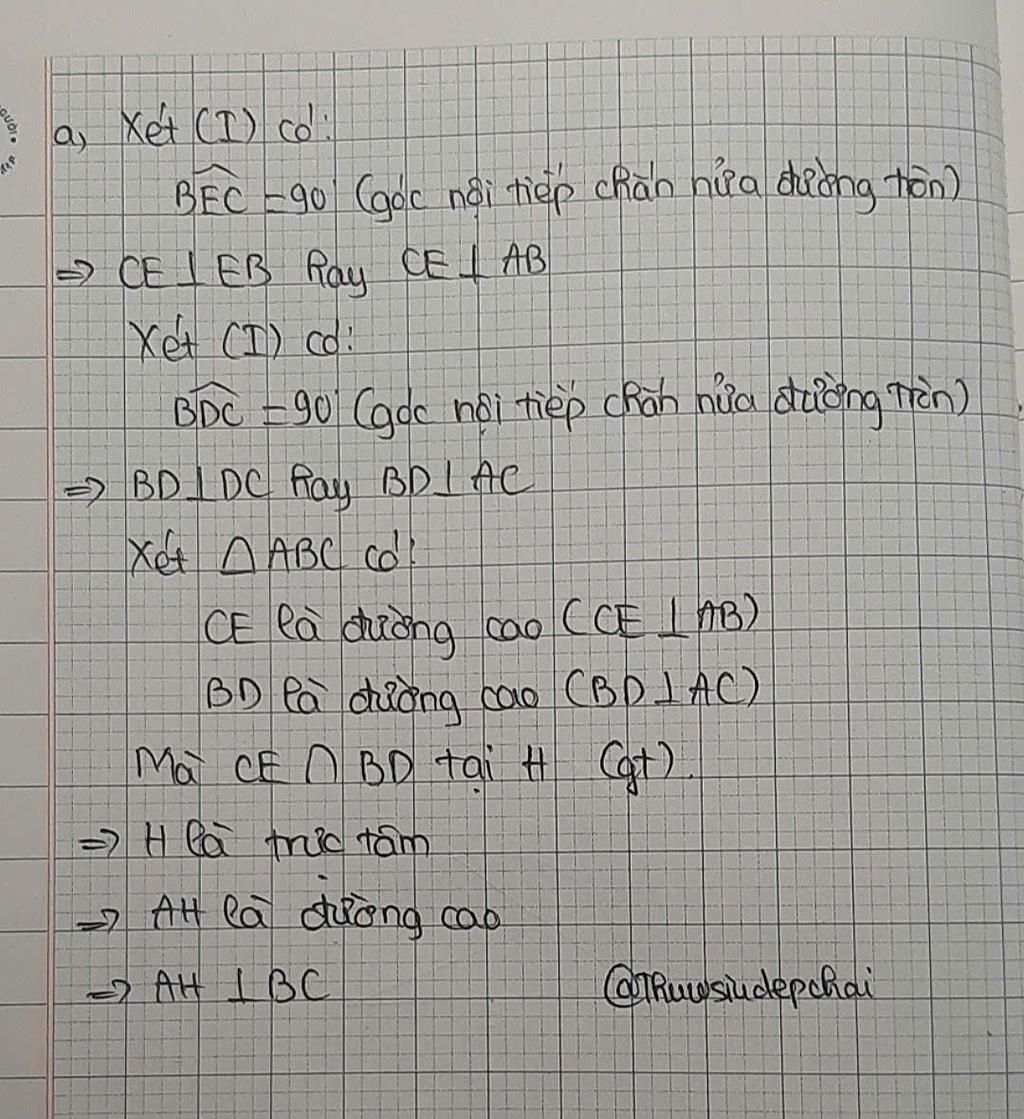 a, Xét (I) có:
$\widehat{BEC}$ = 90° (góc nội tiếp chắn nửa đường tròn)
=> CE ⊥ EB hay CE ⊥ AB
Xét (I) có:
$\widehat{BDC}$ = 90° (góc nội tiếp chắn nửa đường tròn)
=> BD ⊥ DC hay BD ⊥ AC
Xét △ABC có:
CE là đường cao (CE ⊥ AB)
BD là đường cao (BD ⊥ AC)
Mà CE ∩ BD tại H (gt).
=> H là trực tâm
=> AH là đường cao
=> AH ⊥ BC
@Thuwsiudepchai